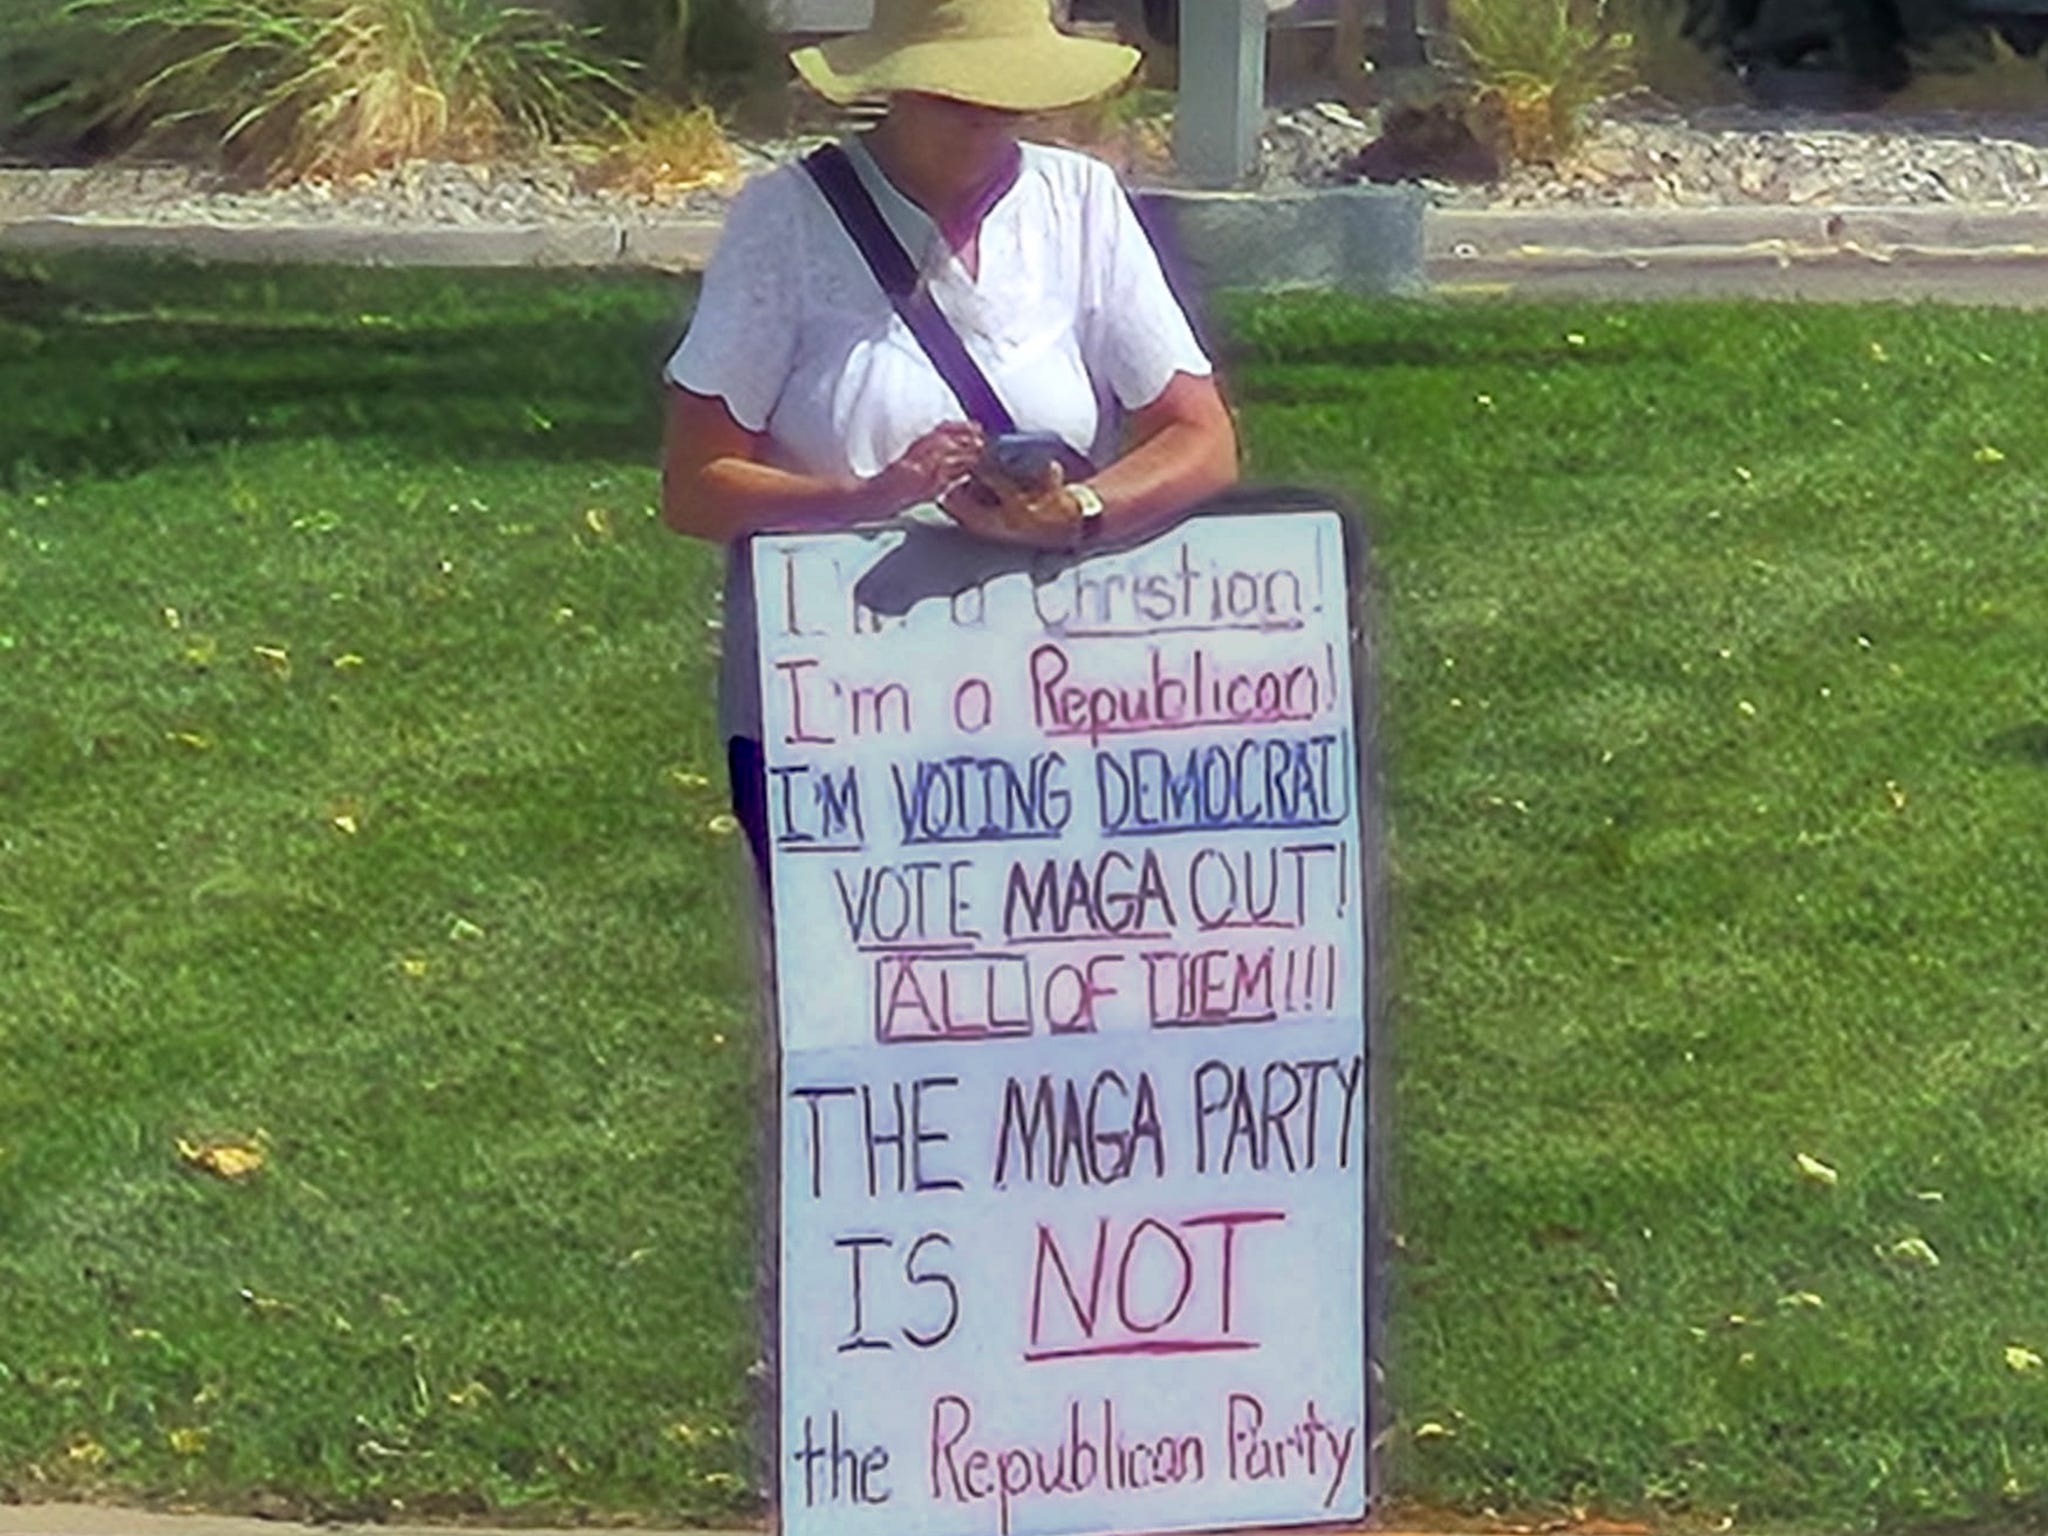 I'm a Christian!
I'm a Republican!
I'M VOTING DEMOCRAT!
VOTE MAGA OUT!
ALL OF THEM!!!
THE MAGA PARTY
IS NOT
the Republican Party